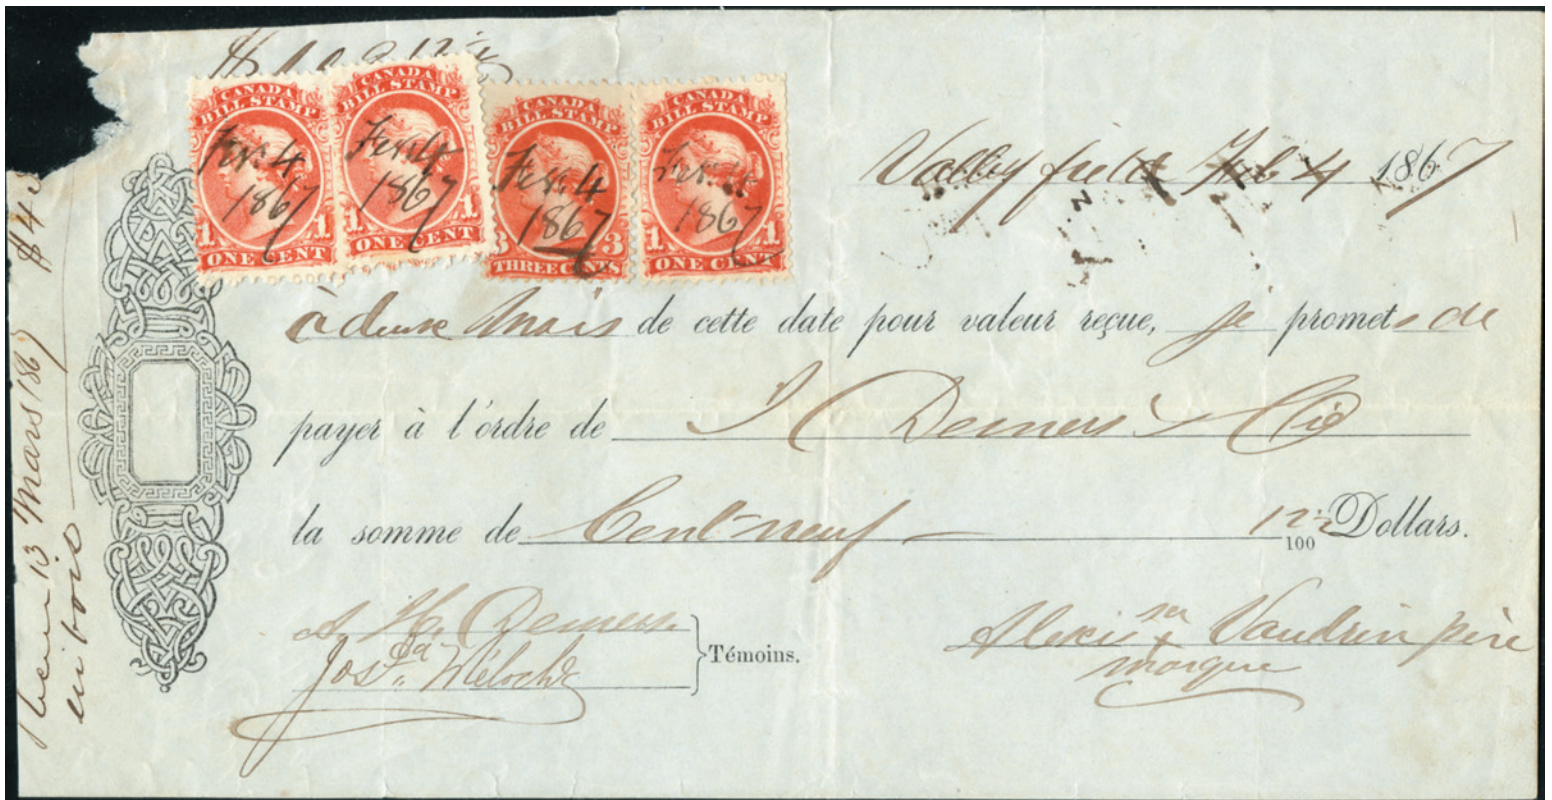 CANADA
BILL STAMP
Fev. 4
1867
1 1
ONE CENT
CANADA
BILL STAMP
Fev. 4
1867
1 1
ONE CENT
CANADA
BILL STAMP
Fev. 4
1867
3 3
THREE CENTS
CANADA
BILL STAMP
1867
1 1
ONE CENT
Valleyfield Feb 4 1867
à deux Mois de cette date pour valeur reçue, je promets de
payer à l'ordre de Demers & Cie
la somme de Cent-neuf 12½/100 Dollars.
A. H. Demers
Jos. Méloche
Témoins.
Alexis sa x Vaudrin père
marque
Recu 13 Mars 1867
en bois